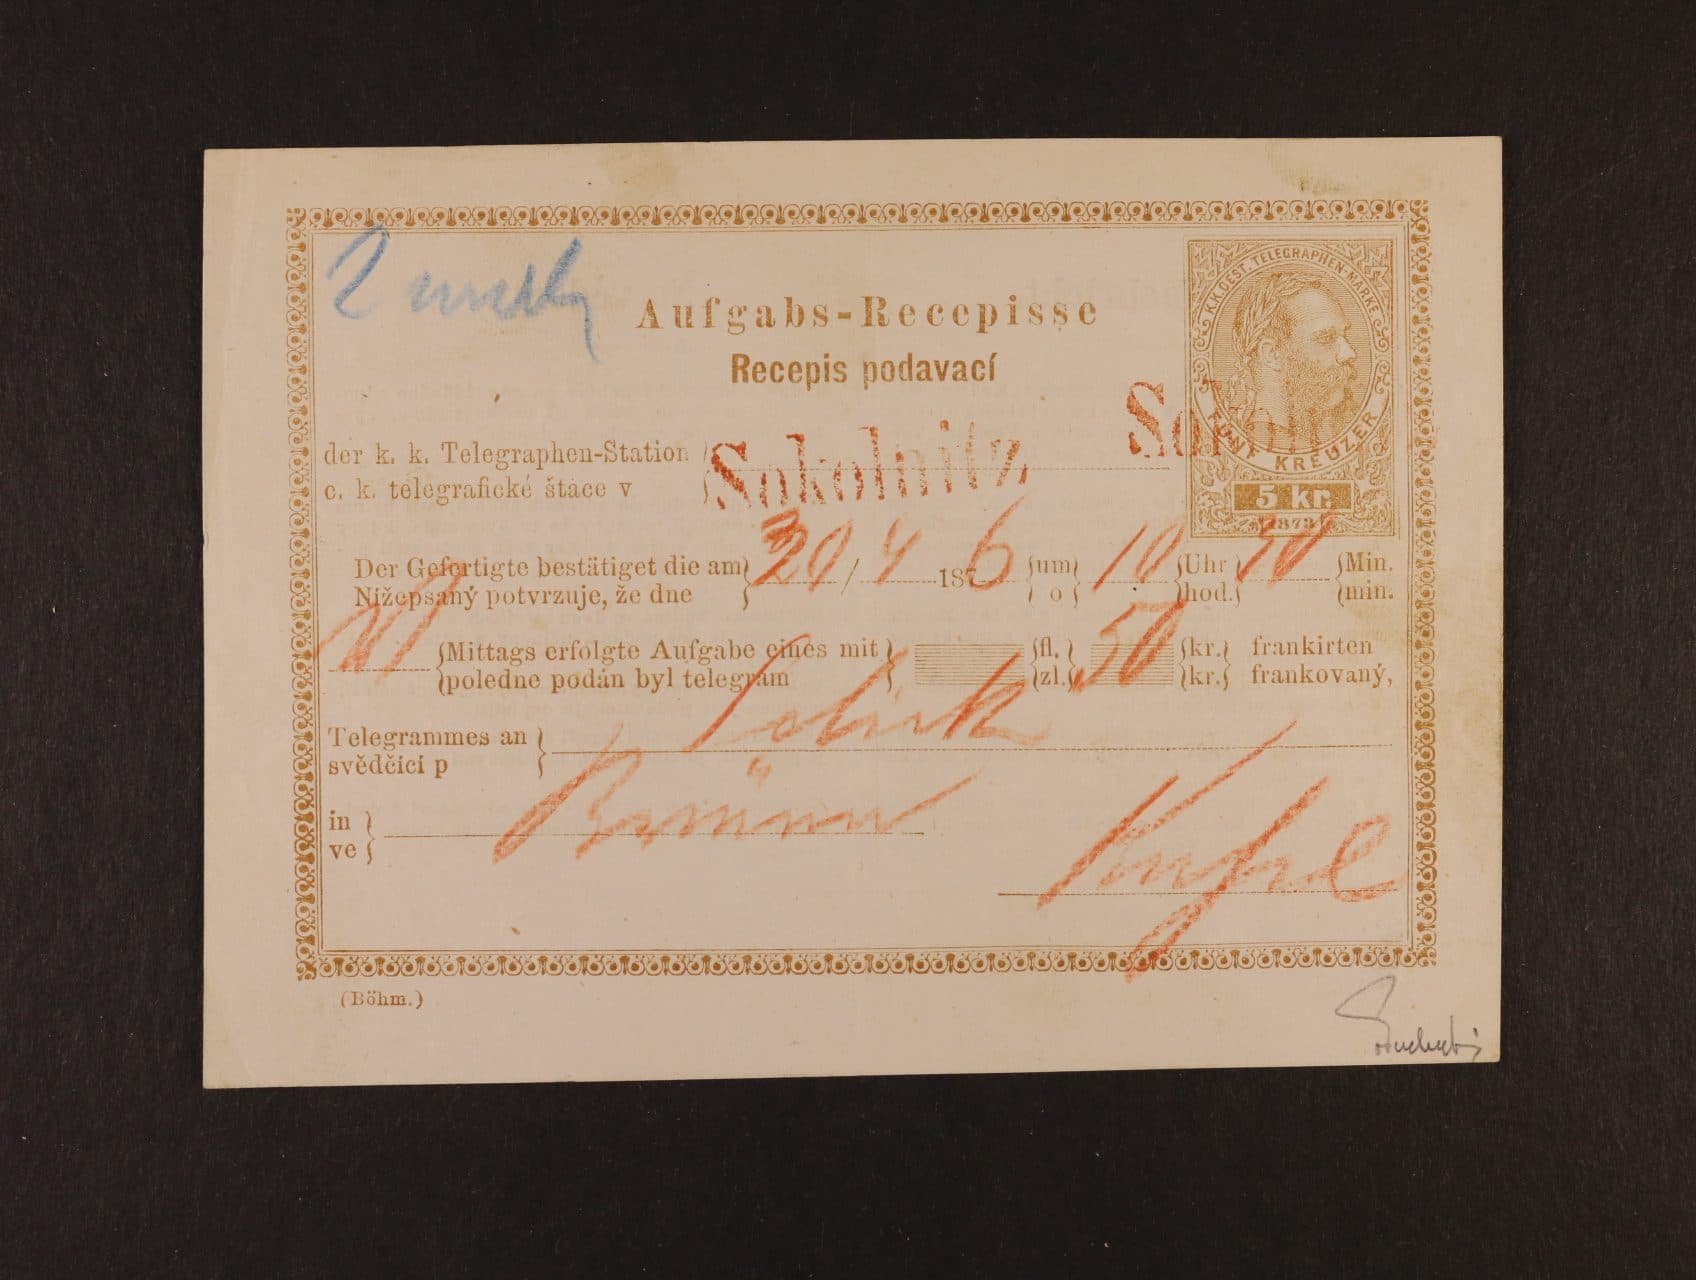 K.K. OEST. TELEGRAPHEN-MARKE
Aufgabs-Recepisse
Recepis podavací
FÜNF KREUZER
5 kr.
1873
der k. k. Telegraphen-Station
c. k. telegrafické štáce v
Sokolnitz
Der Gefertigte bestätiget die am 4 1876 um 10 Uhr 50 Min.
Nižepsaný potvrzuje, že dne o hod. min.
Mittags erfolgte Aufgabe eines mit fl. 50 kr. frankirten
poledne podán byl telegram zl. kr. frankovaný,
Telegrammes an
svědčící p
in Brünn
ve
(Böhm.)